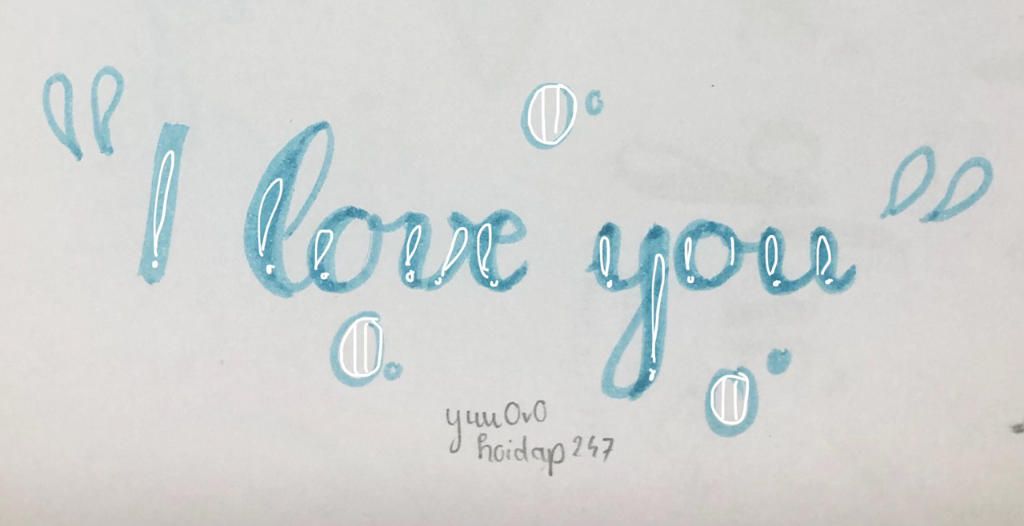 "I love you"
yuu0v0
hoidap247